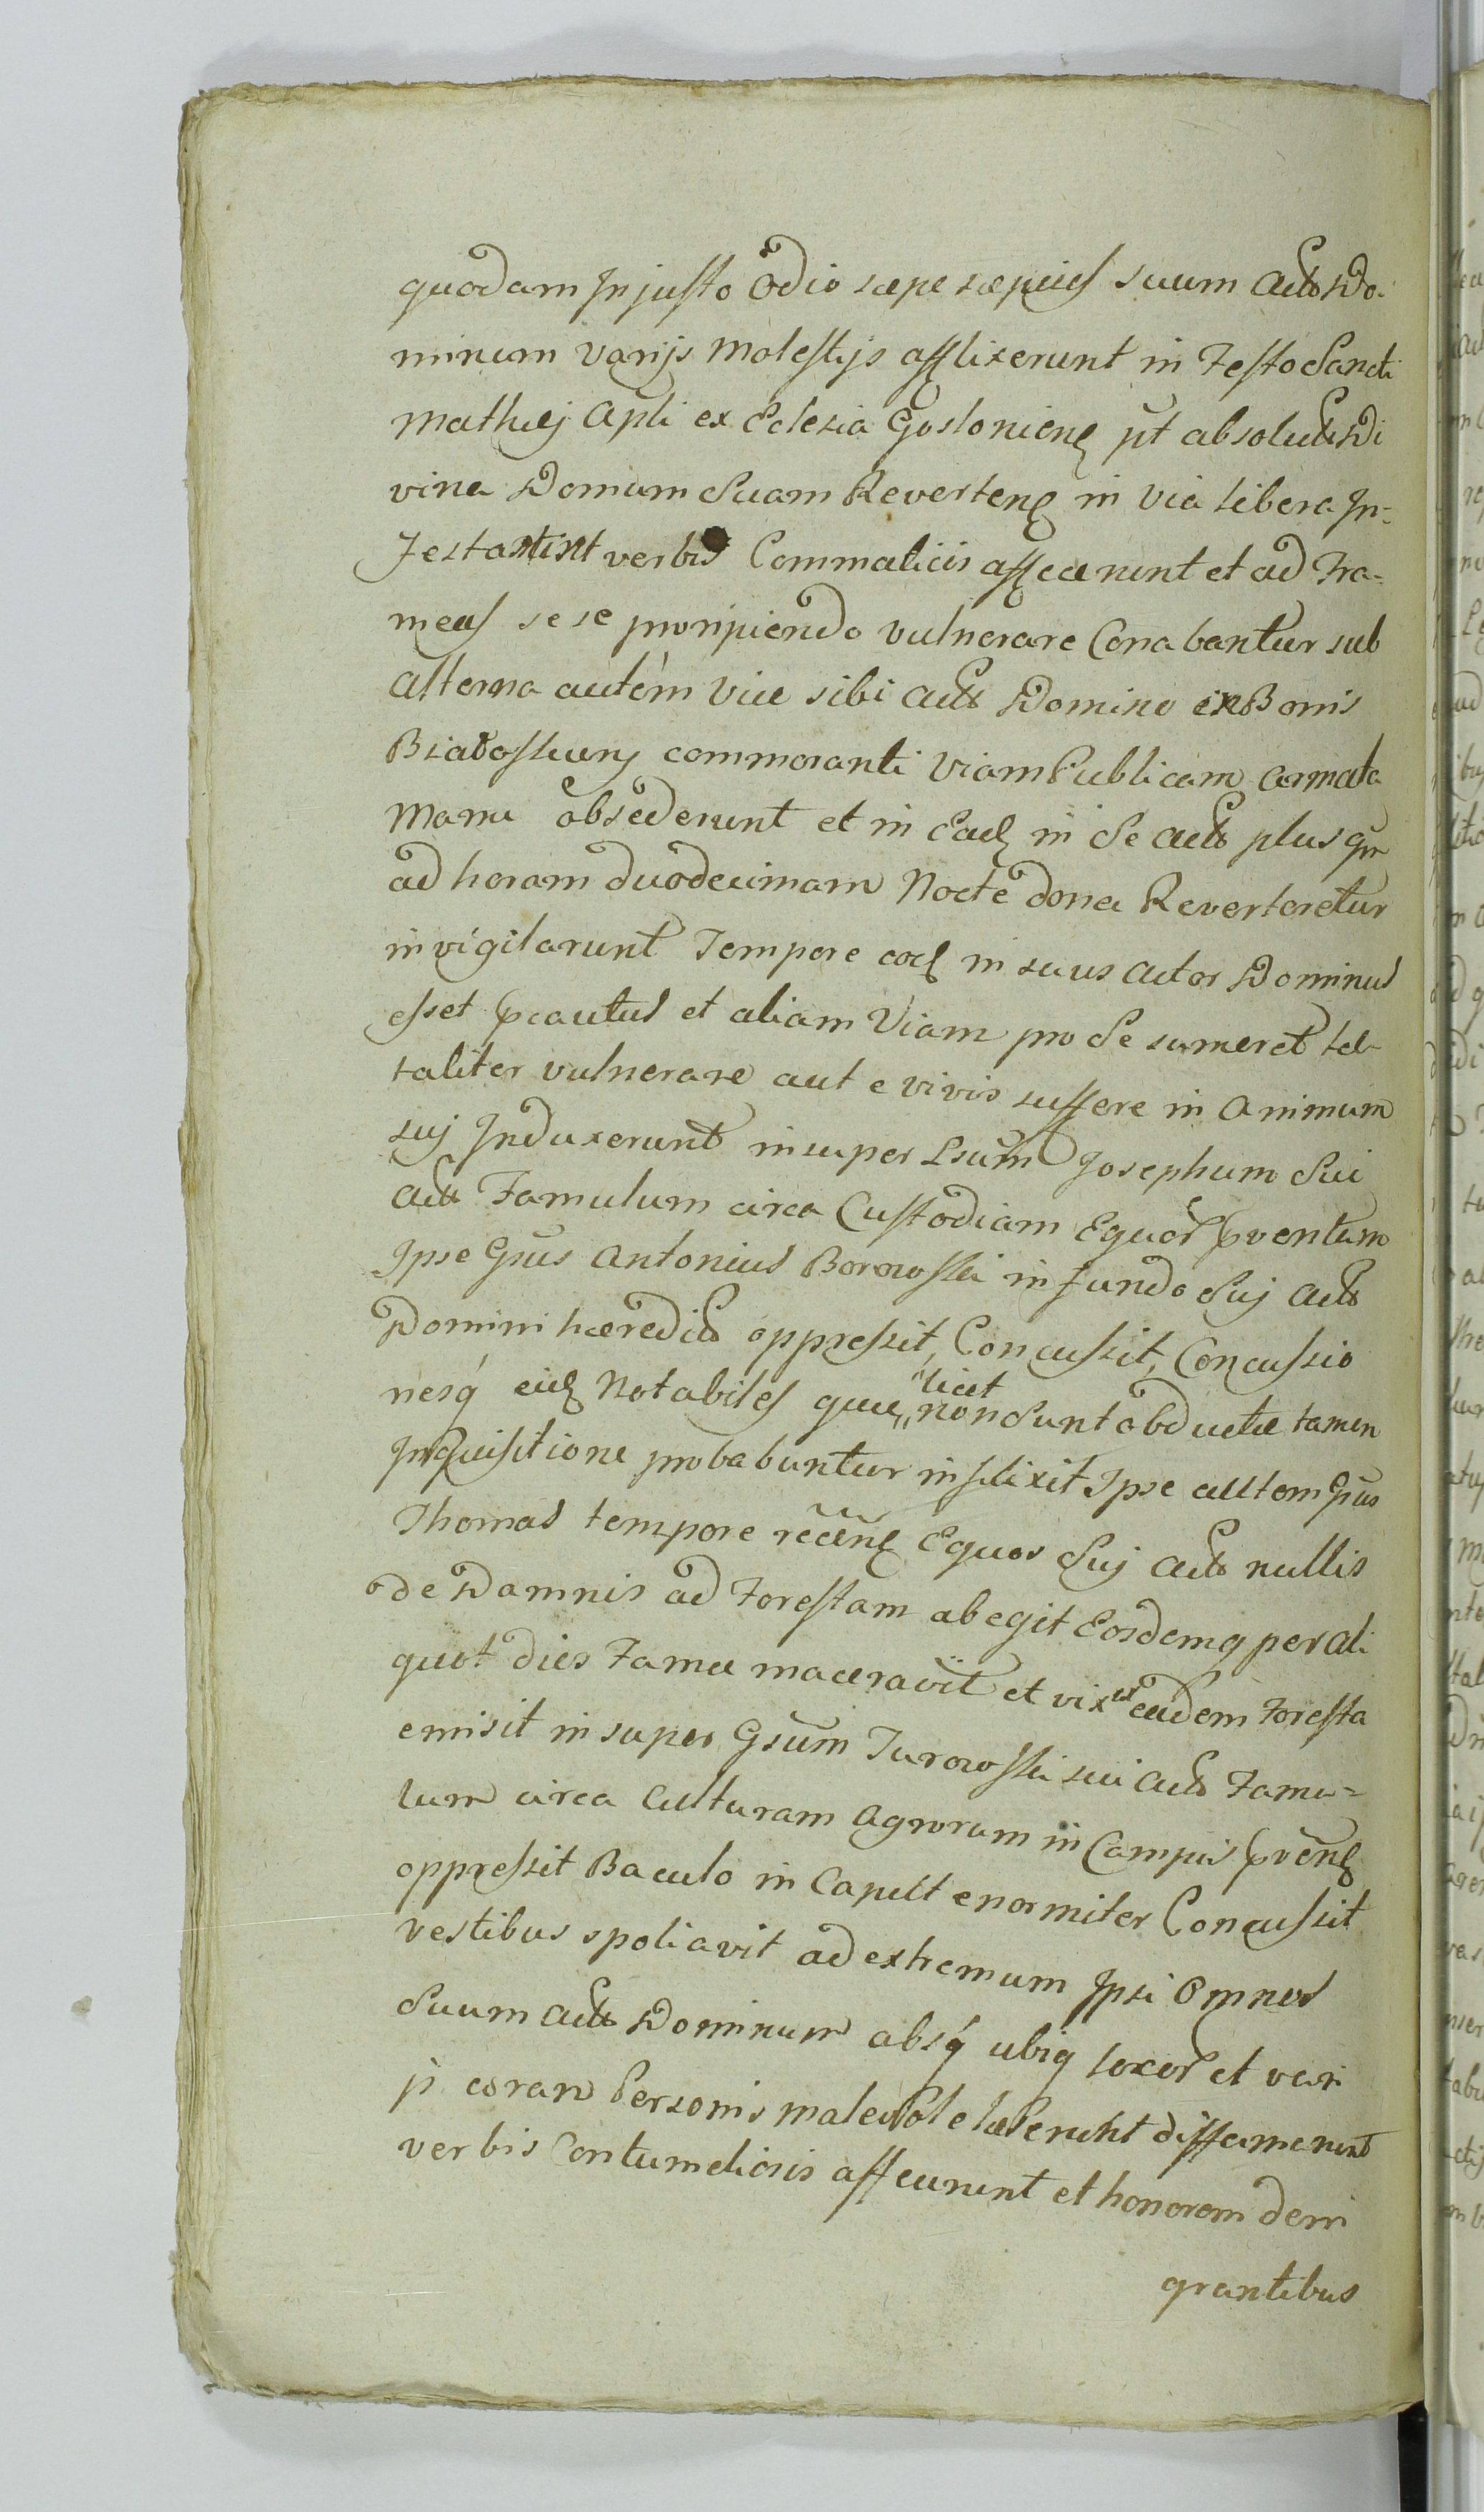 quodam Injusto Odio sæpe sæpius suum actos Do-
minum varijs Molestijs afflixerunt in Festo Sancti
Mathiej Apli ex Eclesia Goslonien̄ ut absolutis Di
vina Domum Suam Reverten̄ in Via libera In-
festarunt verbis Commaticiis affecerunt et ad Fra-
meas se se proripiendo vulnerare Conabantur sub
alterna autem Vice sibi actos Domino in Bonis
commoranti Viam Publicam armata
Manu obsederunt et in Ead in Se actos plus qm
ad horam duodecimam Nocte donec Reverteretur
invigilarunt Tempore eod in suus actor Dominus
esset pcautus et aliam Viam pro Se sumeret let-
taliter vulnerare aut e vivis suffere in Animum
suj Induxerunt insuper Lsum Josephum Sui
actos Famulum circa Custodiam Equor pventum
Ipse Gsus Antonius Borowski in fundo Suj actos
Domini hæredit oppressit, Concussit, Concussio
nesq́ eid Notabiles quæ "licet" non Sunt obductæ tamen
Inquisitione probabuntur inflixit Ipse autem Gsus
Thomas tempore recen̄ Equos Suj actos nullis
de Damnis ad Forestam abegit Eosdemq per ali
quot dies Fame maceravit et vix ex eadem Foresta
emisit insuper Gsum Turowski sui actos Famu-
lum circa Culturam Agrorum in Campis pven̄
oppressit Baculo in Caput enormiter Concussit
vestibus spoliavit ad extremum Ipsi Omnes
Suum actos Dominum absq́ ubiq locor et vari
js coram Personis malevole læserunt diffamarunt
verbis Contumeliosis affecerunt et honorem deni
grantibus